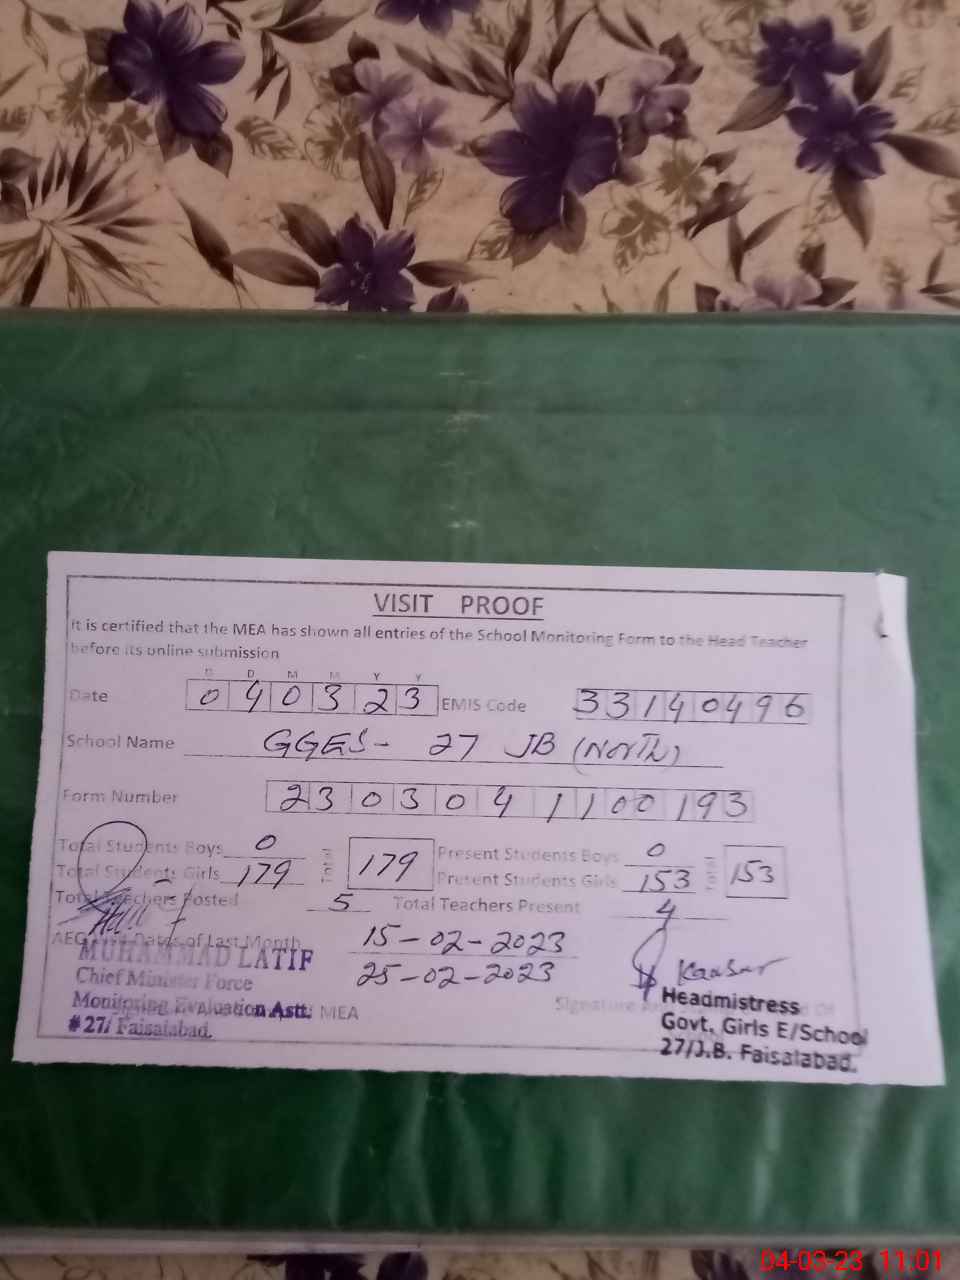 VISIT PROOF
It is certified that the MEA has shown all entries of the School Monitoring Form to the Head Teacher
before its online submission
D D M M Y Y
Date 0 4 0 3 2 3 EMIS Code 3 3 1 4 0 4 9 6
School Name GGES- 27 JB (North)
Form Number 2 3 0 3 0 4 1 1 0 0 1 9 3
Total Students Boys 0 Present Students Boys 0
Total Students Girls 179 Total 179 Present Students Girls 153 Total 153
Total Teachers Posted 5 Total Teachers Present 4
AEO Visit Dates of Last Month 15-02-2023
25-02-2023
MUHAMMAD LATIF
Chief Minister Force
Monitoring Evaluation Astt:
#27/ Faisalabad.
MEA
Kausar
Signature
Headmistress
Govt. Girls E/School
27/J.B. Faisalabad.
04-03-23 11:01